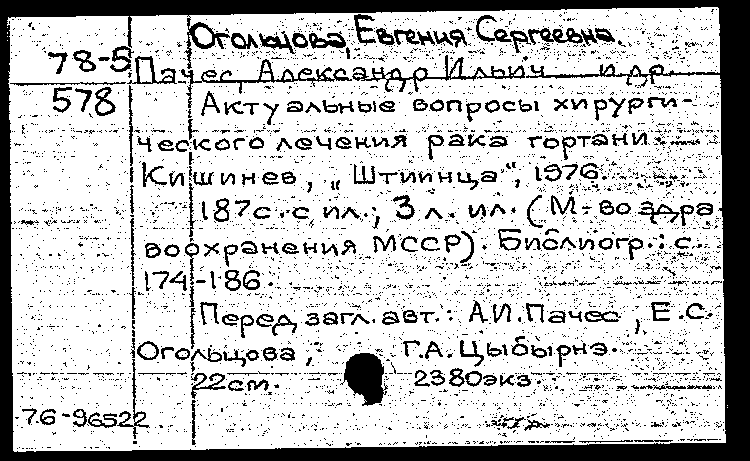 Огольцова, Евгения Сергеевна.
78-5 Пачес, Александр Ильич и др.
578 Актуальные вопросы хирурги-
ческого лечения рака гортани.
Кишинев, „Штиинца", 1976.
187с. с ил.; 3 л. ил. (М-во здра-
воохранения МССР). Библиогр.: с.
174-186.
Перед загл. авт.: А.И.Пачес, Е.С.
Огольцова, Г.А.Цыбырнэ.
22см. 2380экз.
76-96522